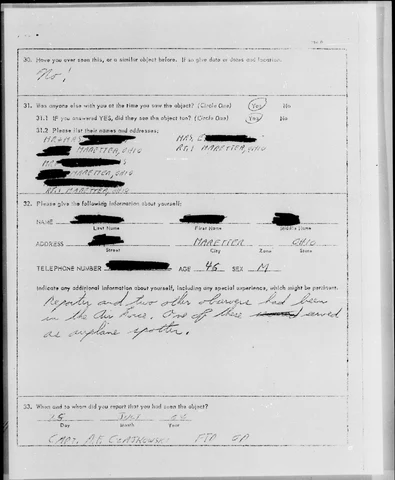 30. Have you ever seen this, or a similar object before. If so give date or dates and location.
No!
31. Was anyone else with you at the time you saw the object? (Circle One) Yes No
31.1 IF you answered YES, did they see the object too? (Circle One) Yes No
31.2 Please list their names and addresses:
MRS.
MARETTER, OHIO RT.1 MARETTER, OHIO
MARETTER, OHIO
RT.1 MARETTER, OHIO
32. Please give the following information about yourself:
NAME
Last Name First Name Middle Name
ADDRESS MARETTER OHIO
Street City Zone State
TELEPHONE NUMBER AGE 46 SEX M
Indicate any additional information about yourself, including any special experience, which might be pertinent.
Reporter and two other observers had been
in the Air Force. One of these served
as airplane spotter.
33. When and to whom did you report that you had seen the object?
Day Month Year
CAPT.